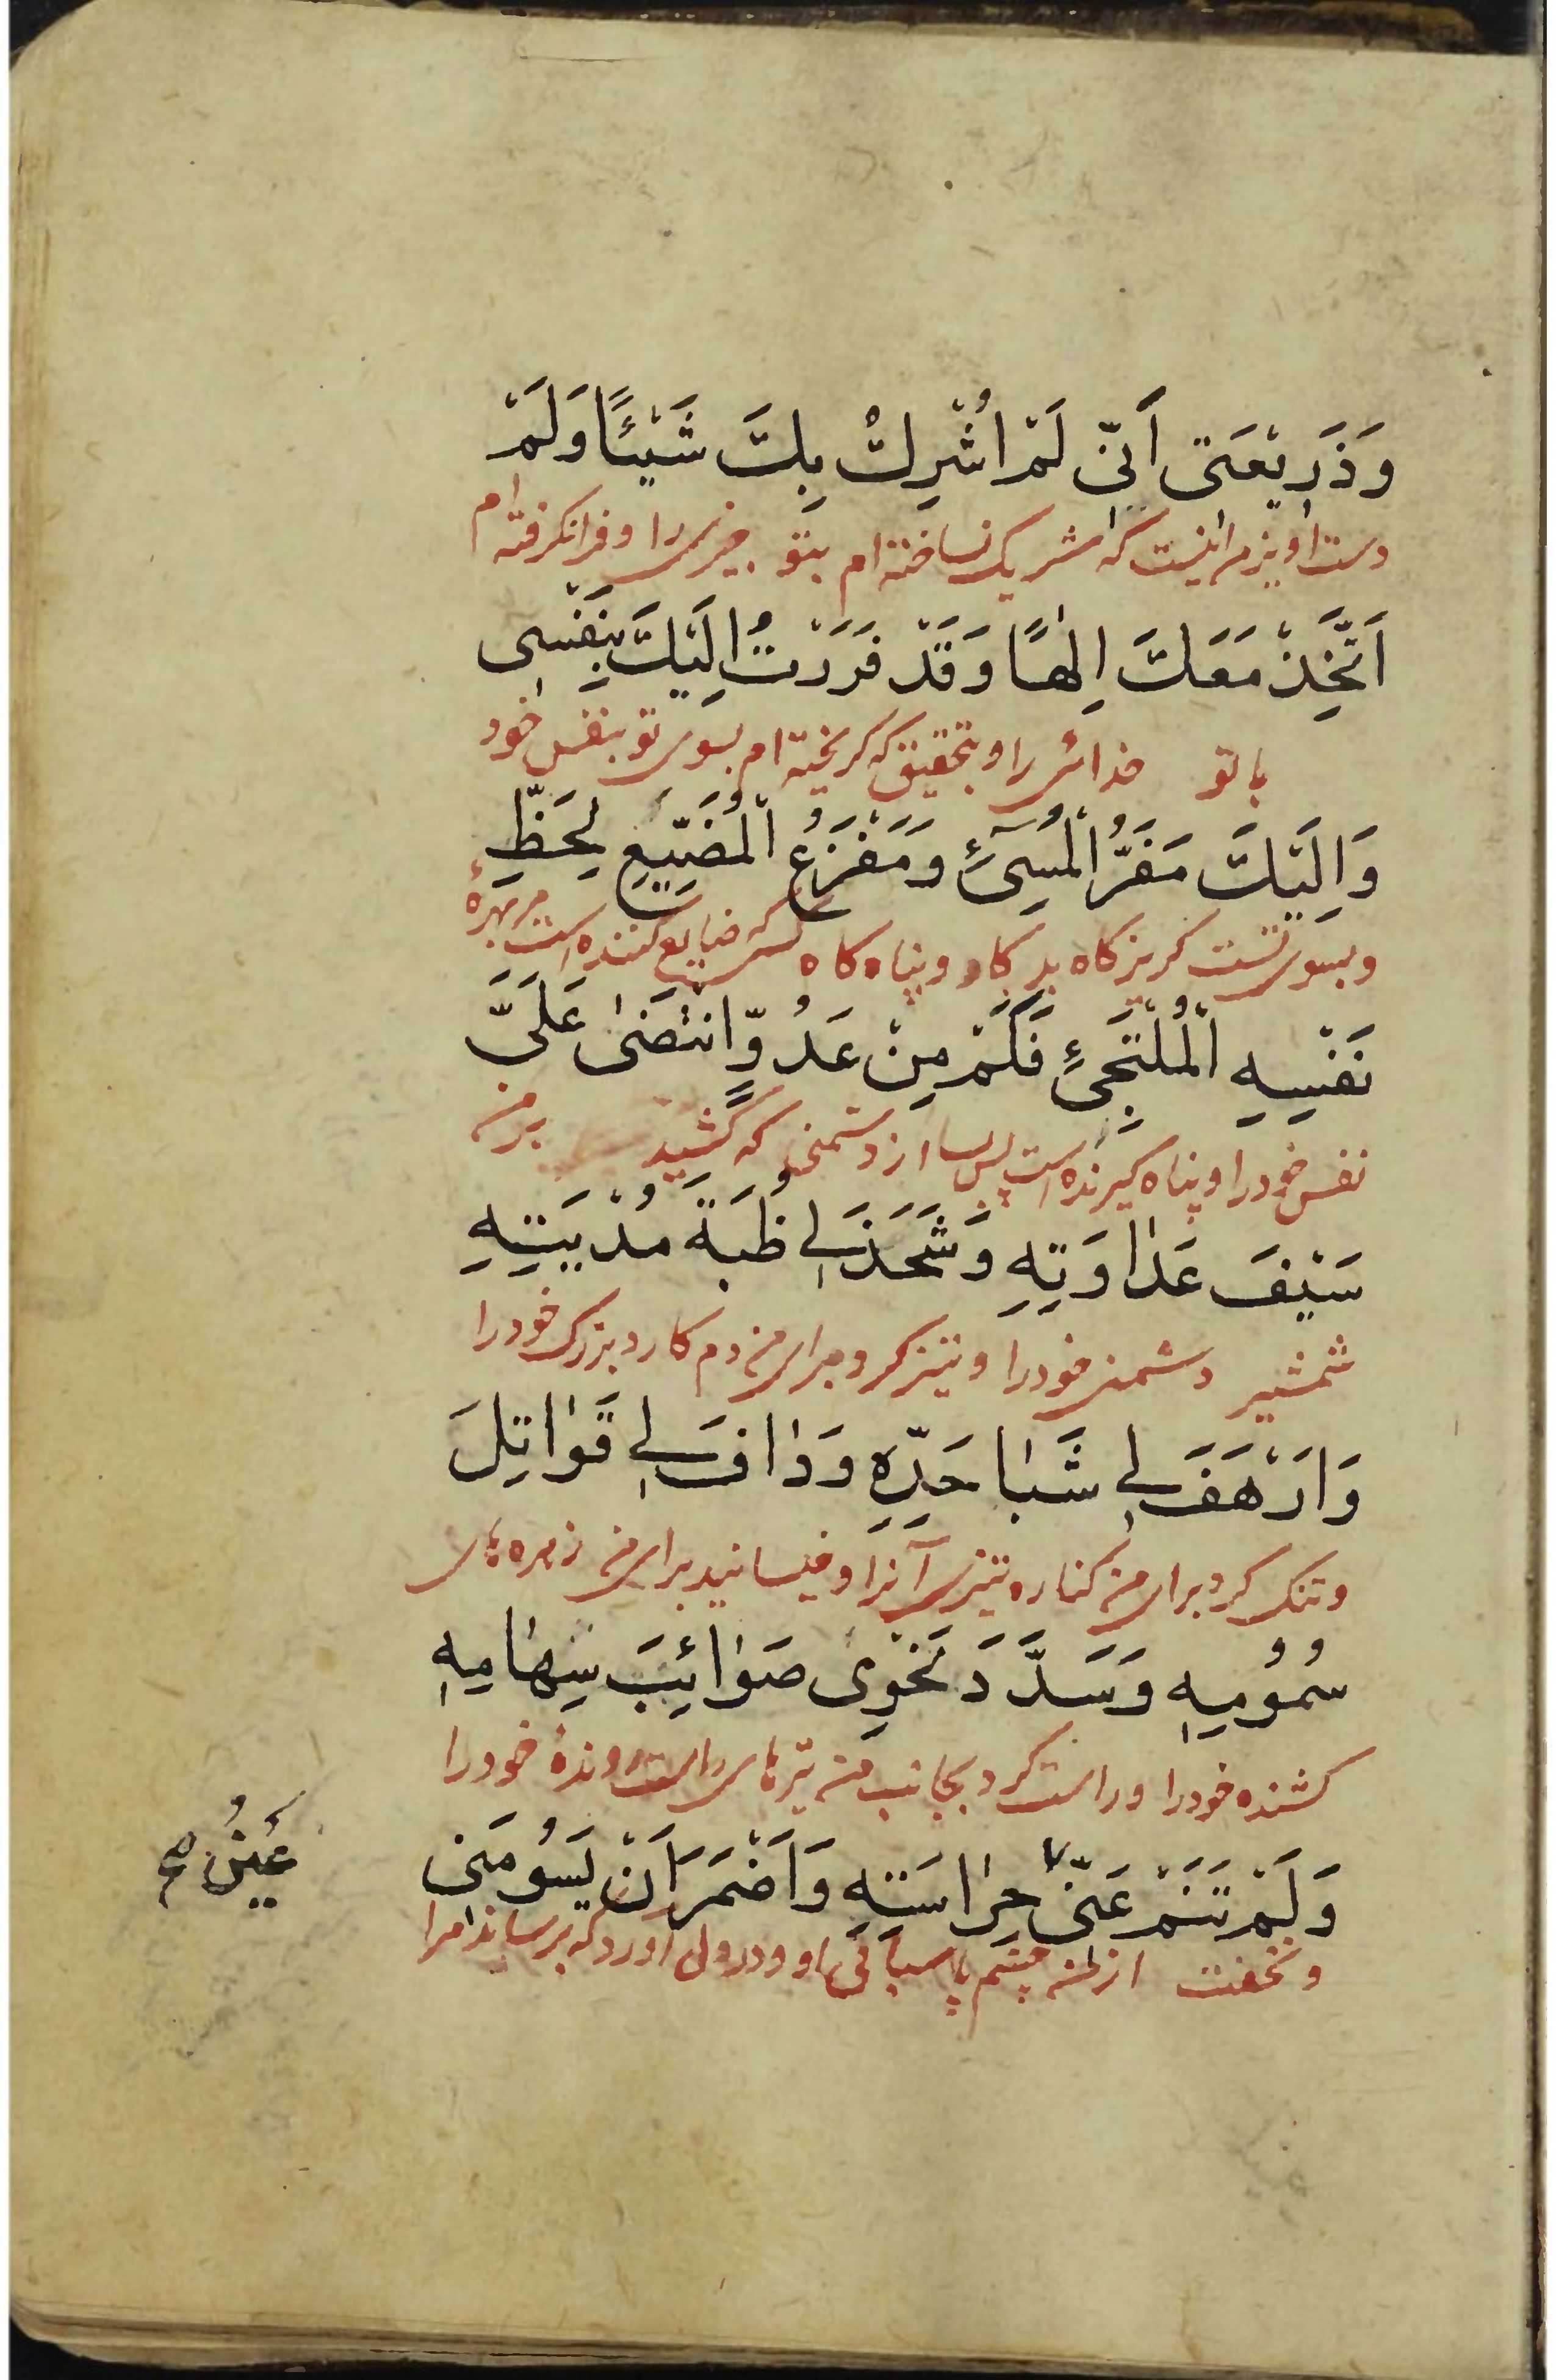 وَذَرِيْعَتى اَنّى لَمْ اُشْرِكْ بِكَ شَيْئًا وَلَمْ
دست اويز من اينست كه شريك نساخته ام بتو چيزى را و فرانكرفته ام
اَتَّخِذْ مَعَكَ اِلٰهًا وَقَدْ فَرَرْتُ اِلَيْكَ بِنَفْسِى
با تو خدائى را و بتحقيق كه كريخته ام بسوى تو بنفس خود
وَاِلَيْكَ مَفَرُّ الْمُسِىٓءِ وَمَفْزَعُ الْمُضَيِّعِ لِحَظِّ
و بسوى تست كريزكاه بدكار و پناه كاه كسى كه ضايع كننده است مر بهرهٔ
نَفْسِهِ الْمُلْتَجِئِ فَكَمْ مِنْ عَدُوٍّ انْتَضٰى عَلَىَّ
نفس خود را و پناه كيرنده است پس بسا از دشمنى كه كشيد بر من
سَيْفَ عَدٰاوَتِهِ وَشَحَذَ لِى ظُبَةَ مُدْيَتِهِ
شمشير دشمنى خود را و تيز كرد براى من دم كارد بزرك خود را
وَاَرْهَفَ لِى شَبٰا حَدِّهِ وَدٰافَ لِى قَوٰاتِلَ
و تنك كرد براى من كناره تيزى آنرا و خيسانيد براى من زهرهاى
سُمُوُمِهِ وَسَدَّدَ نَحْوِى صَوٰائِبَ سِهٰامِهِ
كشنده خود را و راست كرد بجانب من تيرهاى راست روندهٔ خود را
وَلَمْ تَنَمْ عَنّى حِرٰاسَتِهِ وَاَضْمَرَ اَنْ يَسُومَنى
عَيْنُ صح
و نخفت از من چشم پاسبانى او و در دل آورد كه برساند مرا